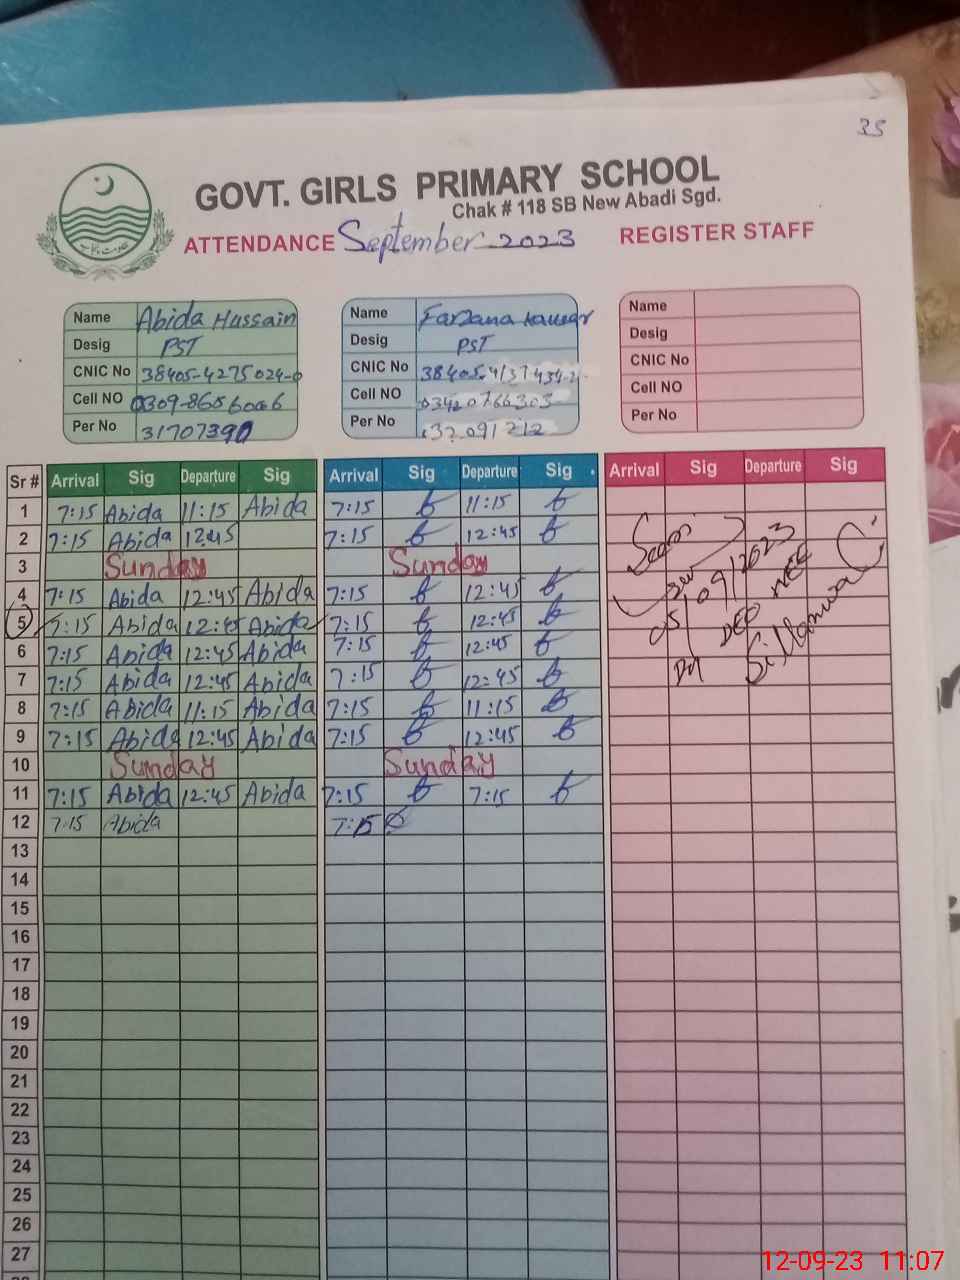 35
GOVT. GIRLS PRIMARY SCHOOL
Chak # 118 SB New Abadi Sgd.
ATTENDANCE September 2023 REGISTER STAFF
Name Abida Hussain
Desig PST
CNIC No 38405-4275024-0
Cell NO 0309-8656006
Per No 31707390
Name Farzana Kausar
Desig PST
CNIC No
Cell NO 03420766303
Per No
Name
Desig
CNIC No
Cell NO
Per No
Sr # Arrival Sig Departure Sig Arrival Sig Departure Sig Arrival Sig Departure Sig
1 7:15 Abida 11:15 Abida 7:15 11:15
2 7:15 Abida 12:45 7:15 12:45
3 Sunday Sunday
4 7:15 Abida 12:45 Abida 7:15 12:45
5 7:15 Abida 12:45 Abida 7:15 12:45
6 7:15 Abida 12:45 Abida 7:15 12:45
7 7:15 Abida 12:45 Abida 7:15 12:45
8 7:15 Abida 11:15 Abida 7:15 11:15
9 7:15 Abida 12:45 Abida 7:15 12:45
10 Sunday Sunday
11 7:15 Abida 12:45 Abida 7:15 7:15
12 7:15 Abida 7:15
13
14
15
16
17
18
19
20
21
22
23
24
25
26
27
05/09/2023
DEO MEE
12-09-23 11:07